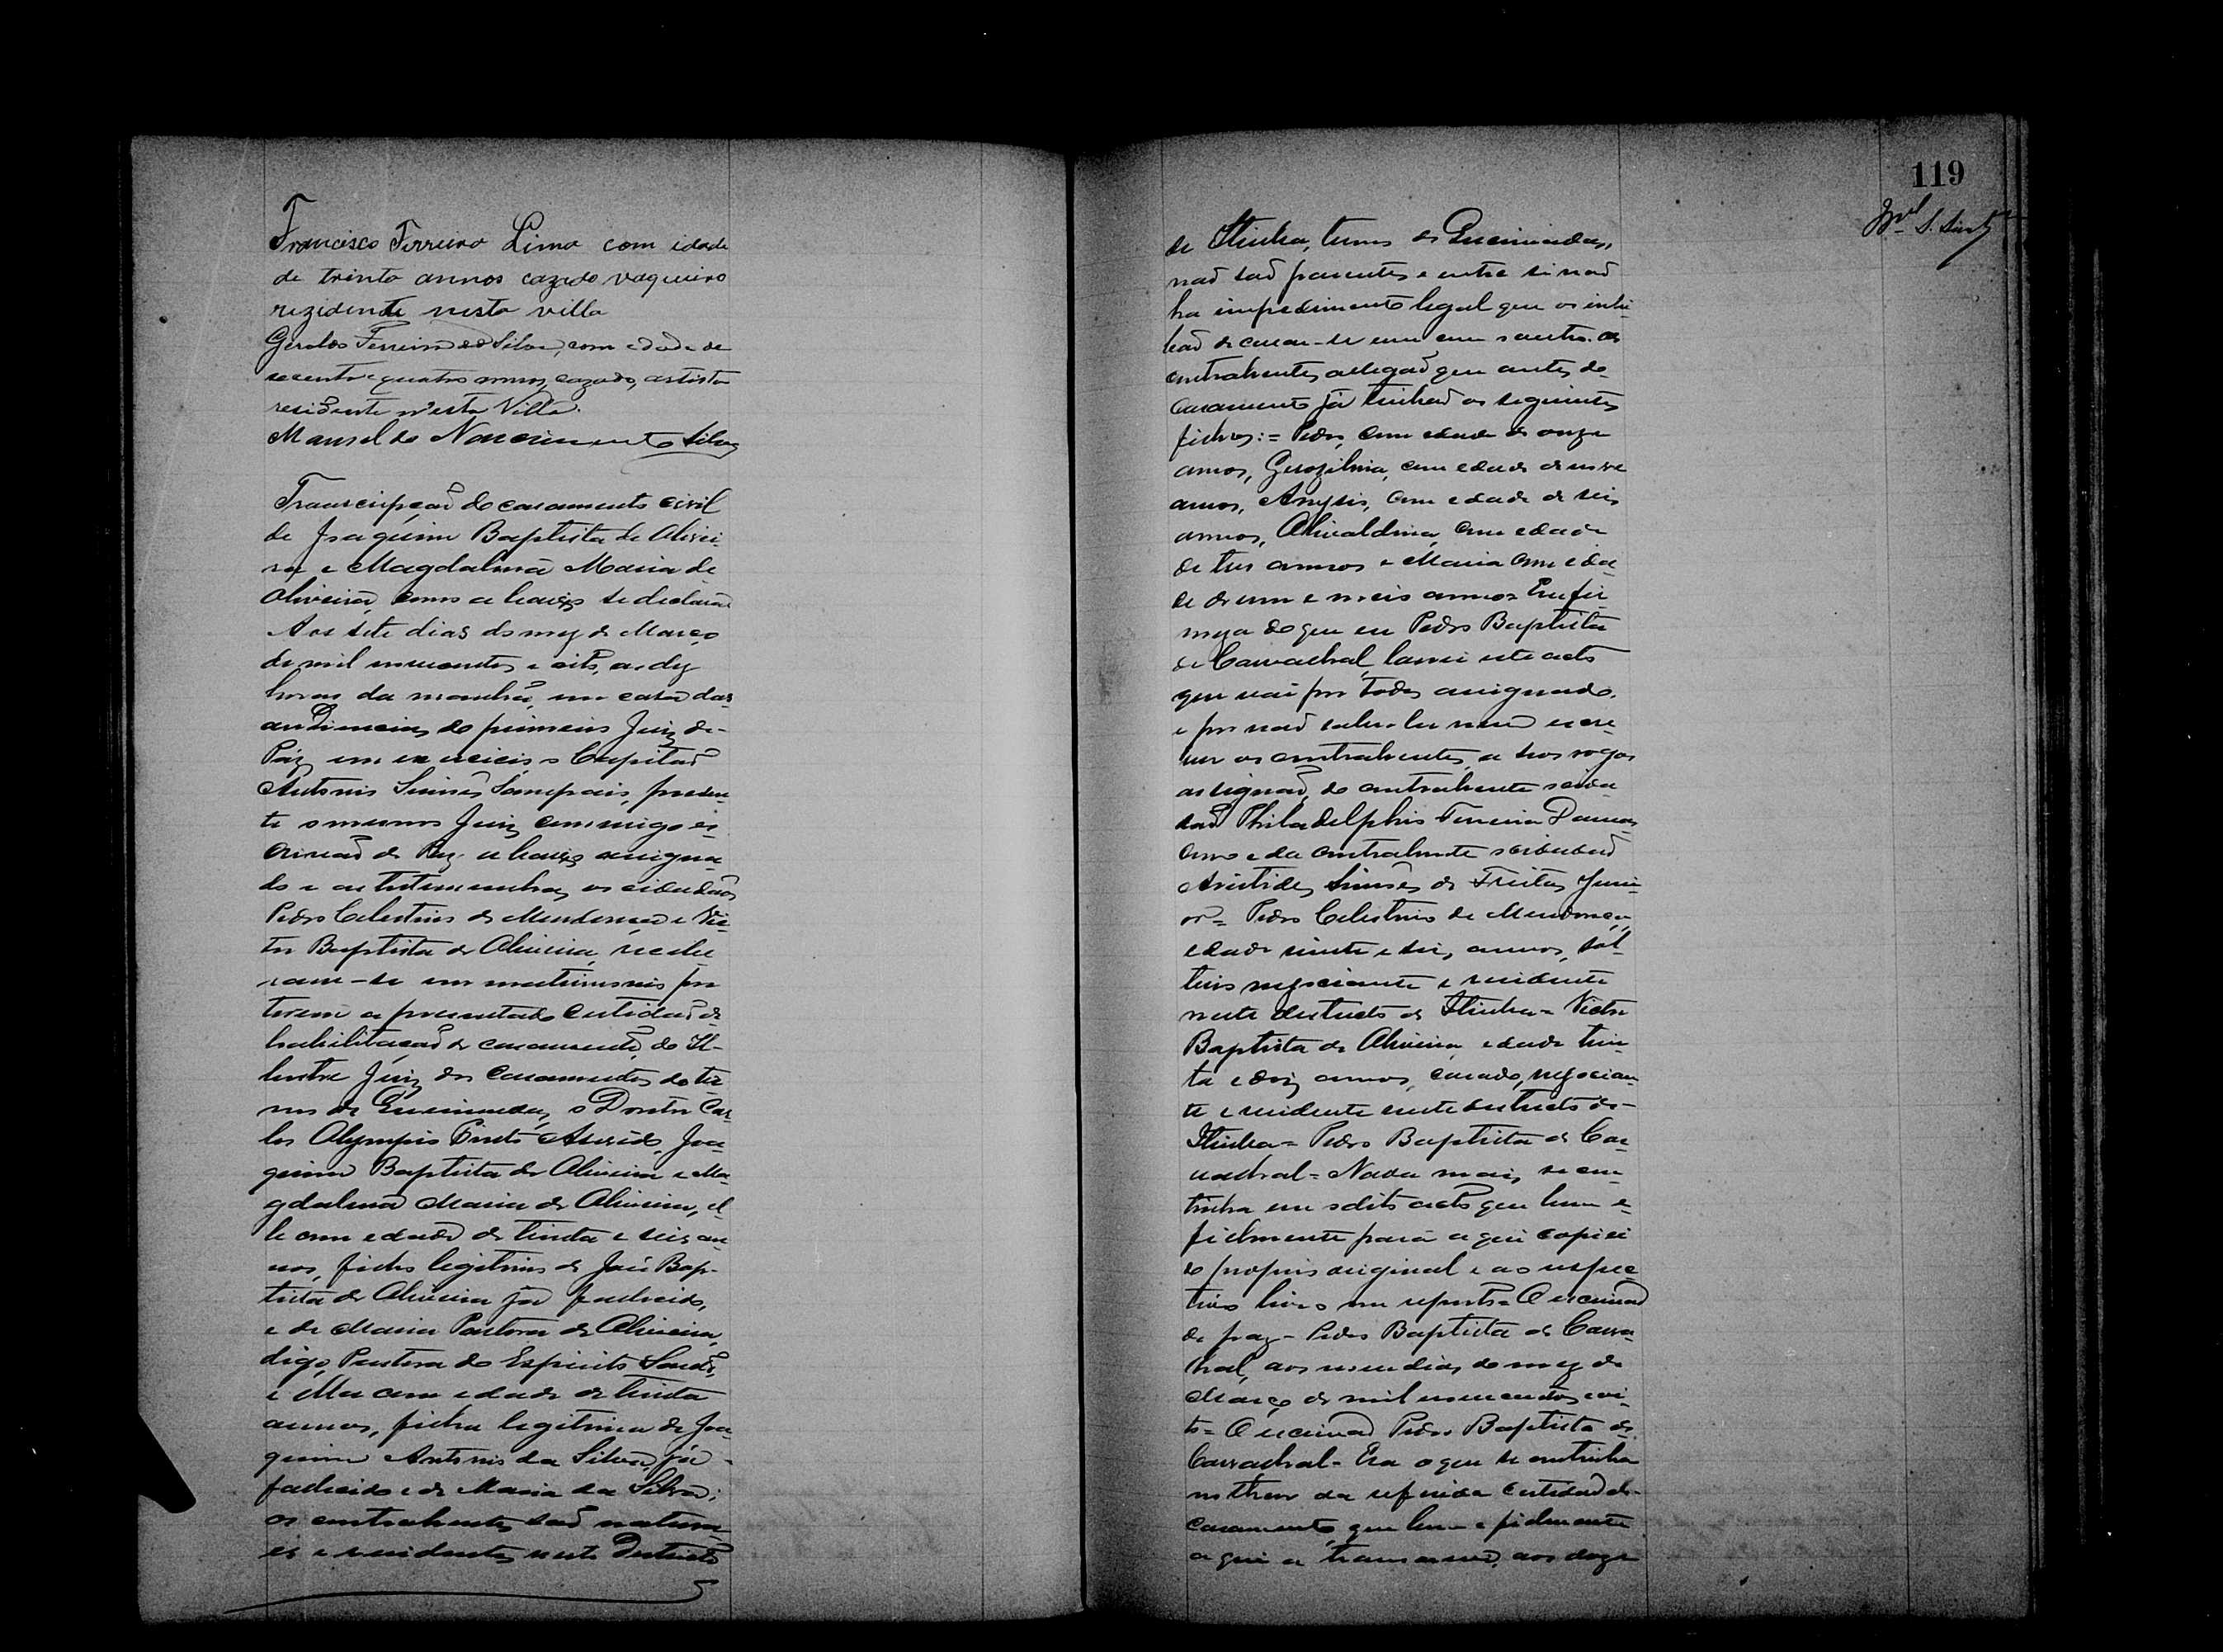 Francisco Ferreira Lima com idade
de trinta annos cazado vaqueiro
rezidente nesta villa
Geraldo Ferreira da Silva, com edade de
secenta e quatro annos, cazado, artista
residente n'esta Villa.
Manoel do Nascimento Silva
Transcripção do casamento civil
de Joaquim Baptista de Olivei-
ra e Magdalena Maria de
Oliveira, como a baixo se declara
Aos sete dias do mez de Março
de mil novecentos e oito, as dez
horas da manhã, em casa das
audiencias do primeiro Juiz de
Paz em exercicio o Capitão
Antonio Simões Sampaio, presen-
te o mesmo Juiz commigo es-
crivão de Paz a baixo assigna-
do e as testemunhas os cidadãos
Pedro Celestino de Mendonça e Vic-
tor Baptista de Oliveira, recebe
ram-se em matrimonio por
terem apresentado certidão de
habilitação de casamento do Il-
lustre Juiz dos Casamentos do ter-
mo de Queimadas, o Doutor Car-
los Olympio Pinto Azeredo, Joa-
quim Baptista de Oliveira e Ma-
gdalena Maria de Oliveira, el-
le com edade de trinta e seis an-
nos, filho legitimo de José Bap-
tista de Oliveira já fallecido,
e de Maria Pastora de Oliveira,
digo, Pastora do Espirito Santo,
e ella com edade de trinta
annos, filha legitima de Joa-
quim Antonio da Silva, já
fallecido e de Maria da Silva;
os contrahentes são natura-
es e residentes neste Districto
119
de Itiuba, termo de Queimadas,
não são parentes e entre si não
ha impedimento legal que os inhi-
bão de casar-se um com o outro. Os
contrahentes allegão que antes do
casamento já tinhão os seguintes
filhos:= Pedro, com edade de onze
annos, Gerozilina, com edade de nove
annos, Anysio, com edade de seis
annos, Olivaldina, com edade
de tres annos e Maria com eda-
de de um e meio annos. Em fir-
meza do que eu Pedro Baptista
de Carvalhal, lavrei este acto
que vai por todos assignado.
e por não saber ler nem escre-
ver os contrahentes, a seos rogos
assignão, do contrahente o cida-
dão Philadelphio Ferreira Damas-
ceno e da contrahente o cidadão
Aristides Simões de Freitas Juni-
or= Pedro Celestino de Mendonça,
edade vinte e seis annos, sol-
teiro negociante e residente
neste districto de Itiuba= Victor
Baptista de Oliveira edade trin-
ta e dois annos, casado, negocian-
te e residente neste districto de
Itiuba= Pedro Baptista de Car-
valhal= Nada mais se con-
tinha em o dito acto que bem e
fielmente para aqui copiei
do proprio original e ao respec-
tivo livro me reporto= O escrivão
de paz= Pedro Baptista de Carva-
lhal, aos nove dias do mez de
Março de mil novecentos e oi-
to= O escrivão Pedro Baptista de
Carvalhal= Era o que se continha
no theor da referida certidão de
casamento, que bem e fielmente
aqui a transcrevi, aos doze